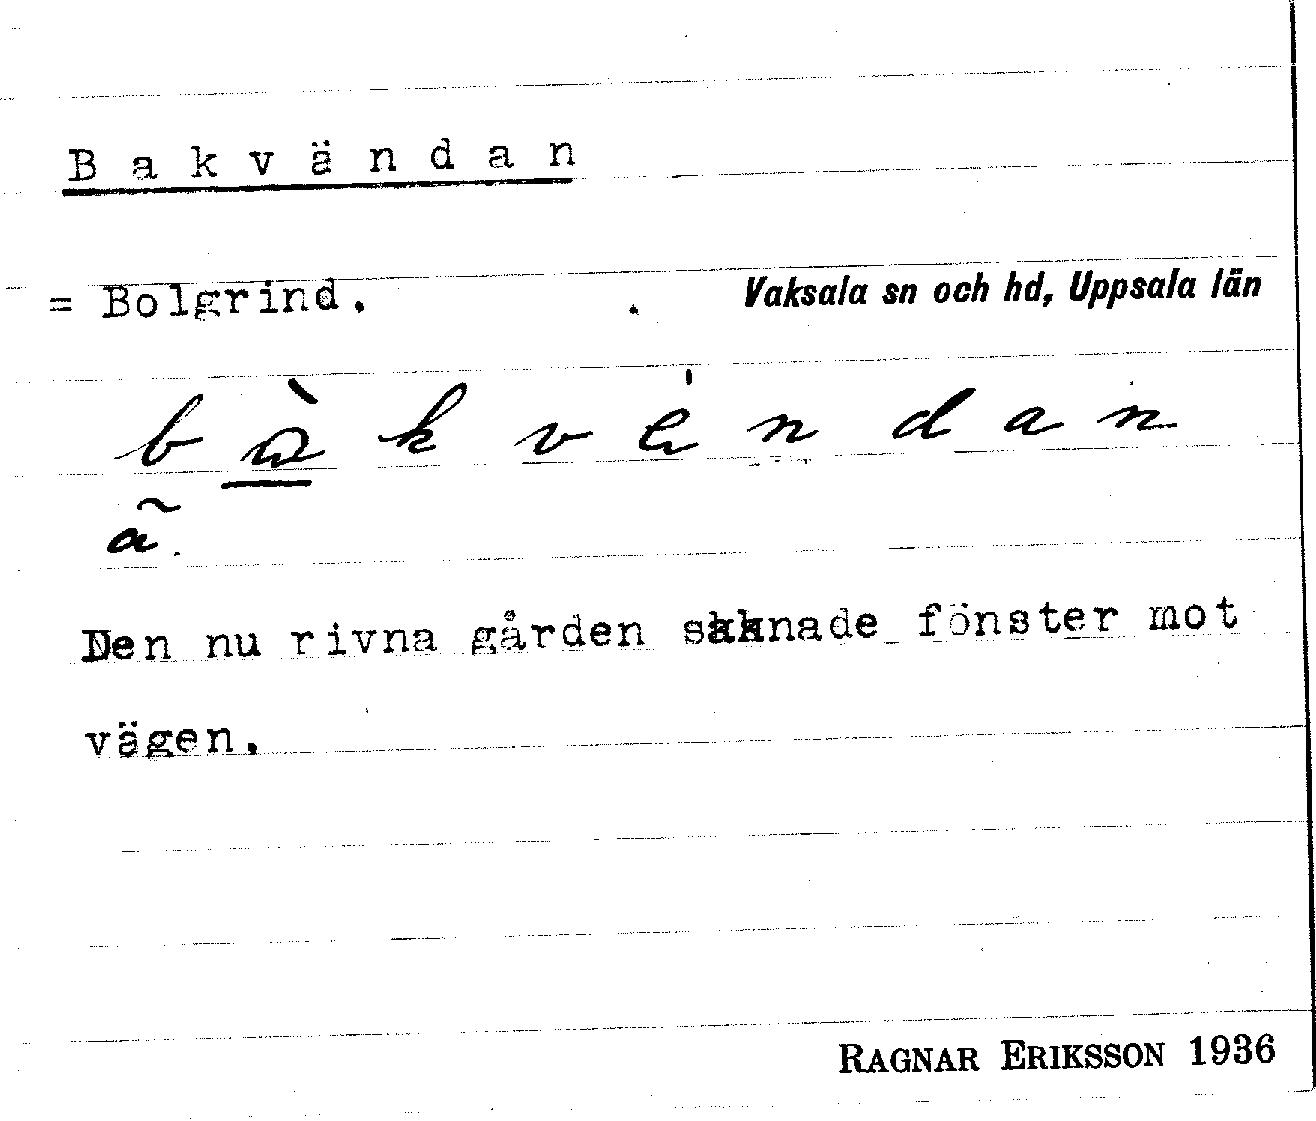 B a k v ä n d a n
= Bolgrind. Vaksala sn och hd, Uppsala län
b à k v e ̍ n d a n
ã.
Den nu rivna gården saknade fönster mot
vägen.
RAGNAR ERIKSSON 1936